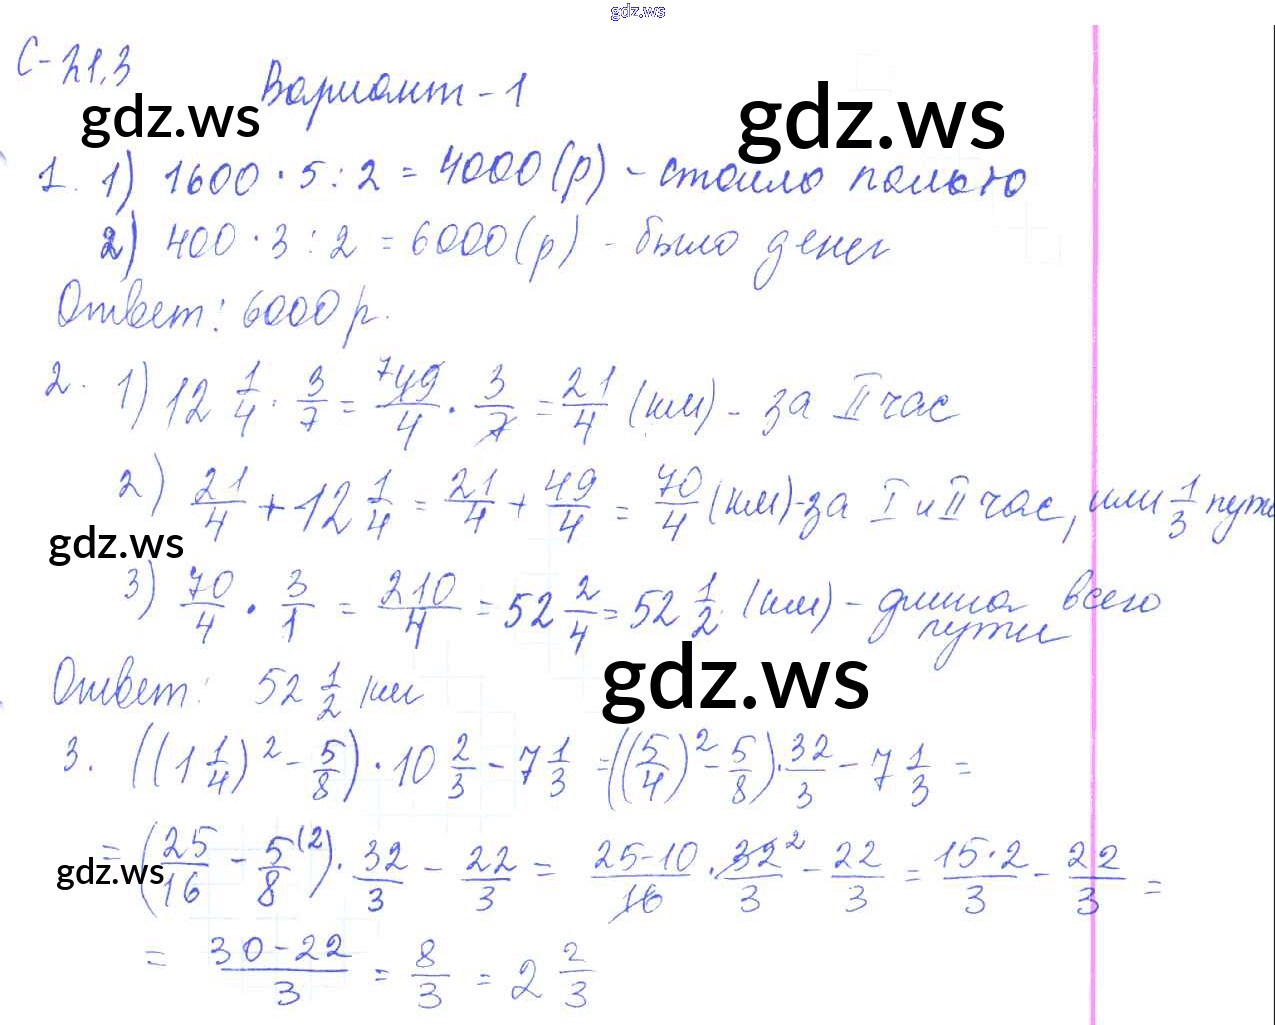 gdz.ws
С-21,3
gdz.ws Вариант-1 gdz.ws
1. 1) 1600 · 5 : 2 = 4000 (р) - стоило пальто
2) 400 · 3 : 2 = 6000 (р) - было денег
Ответ: 6000 р.
2. 1) 12 1/4 · 3/7 = 49/4 · 3/7 = 21/4 (км) - за II час
2) 21/4 + 12 1/4 = 21/4 + 49/4 = 70/4 (км) - за I и II час, или 1/3 пути
gdz.ws
3) 70/4 · 3/1 = 210/4 = 52 2/4 = 52 1/2 (км) - длина всего
пути
gdz.ws
Ответ: 52 1/2 км
3. ((1 1/4)² - 5/8) · 10 2/3 - 7 1/3 = ((5/4)² - 5/8) · 32/3 - 7 1/3 =
= (25/16 - 5/8 (2) ) · 32/3 - 22/3 = 25-10/16 · 32²/3 - 22/3 = 15·2/3 - 22/3 =
gdz.ws
= 30-22/3 = 8/3 = 2 2/3